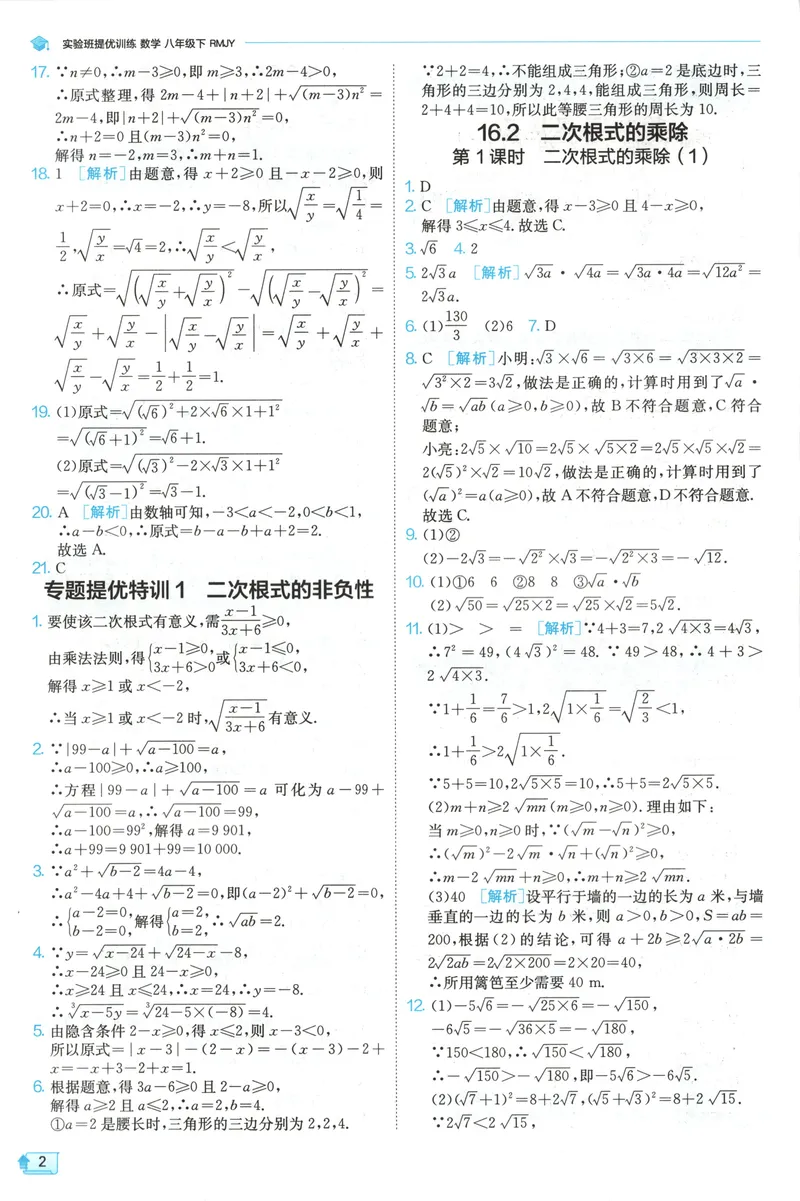 实验班提优训练 数学 八年级下 RMJY
17. ∵n≠0,∴m-3≥0,即 m≥3,∴2m-4>0,
∴原式整理,得 2m-4+|n+2|+√((m-3)n²)=
2m-4,即|n+2|+√((m-3)n²)=0,
∴n+2=0 且(m-3)n²=0,
解得 n=-2,m=3,∴m+n=1.
18. 1 [解析]由题意,得 x+2≥0 且-x-2≥0,则
x+2=0,∴x=-2,∴y=-8,所以√(x/y)=√(1/4)=
1/2,√(y/x)=√4=2,∴√(x/y)<√(y/x),
∴原式=√((√(x/y)+√(y/x))²)-√((√(x/y)-√(y/x))²)=
√(x/y)+√(y/x)-|√(x/y)-√(y/x)|=√(x/y)+√(y/x)+
√(x/y)-√(y/x)=1/2+1/2=1.
19. (1)原式=√((√6)²+2×√6×1+1²)
=√((√6+1)²)=√6+1.
(2)原式=√((√3)²-2×√3×1+1²)
=√((√3-1)²)=√3-1.
20. A [解析]由数轴可知,-3<a<-2,0<b<1,
∴a-b<0,∴原式=b-a-b+a+2=2.
故选 A.
21. C
专题提优特训 1 二次根式的非负性
1. 要使该二次根式有意义,需(x-1)/(3x+6)≥0,
由乘法法则,得{x-1≥0,3x+6>0或{x-1≤0,3x+6<0,
解得 x≥1 或 x<-2,
∴当 x≥1 或 x<-2 时,√((x-1)/(3x+6))有意义.
2. ∵|99-a|+√(a-100)=a,
∴a-100≥0,∴a≥100,
∴方程|99-a|+√(a-100)=a 可化为 a-99+
√(a-100)=a,∴√(a-100)=99,
∴a-100=99²,解得 a=9 901,
∴a+99=9 901+99=10 000.
3. ∵a²+√(b-2)=4a-4,
∴a²-4a+4+√(b-2)=0,即(a-2)²+√(b-2)=0,
∴{a-2=0,b-2=0,解得{a=2,b=2,∴√(ab)=2.
4. ∵y=√(x-24)+√(24-x)-8,
∴x-24≥0 且 24-x≥0,
∴x≥24 且 x≤24,∴x=24,∴y=-8.
∴³√(x-5y)=³√(24-5×(-8))=4.
5. 由隐含条件 2-x≥0,得 x≤2,则 x-3<0,
所以原式=|x-3|-(2-x)=-(x-3)-2+
x=-x+3-2+x=1.
6. 根据题意,得 3a-6≥0 且 2-a≥0,
解得 a≥2 且 a≤2,∴a=2,b=4.
①a=2 是腰长时,三角形的三边分别为 2,2,4.
∵2+2=4,∴不能组成三角形;②a=2 是底边时,三
角形的三边分别为 2,4,4,能组成三角形,则周长=
2+4+4=10,所以此等腰三角形的周长为 10.
16.2 二次根式的乘除
第 1 课时 二次根式的乘除(1)
1. D
2. C [解析]由题意,得 x-3≥0 且 4-x≥0,
解得 3≤x≤4.故选 C.
3. √6 4. 2
5. 2√3a [解析]√(3a)·√(4a)=√(3a·4a)=√(12a²)=
2√3a.
6. (1)130/3 (2)6 7. D
8. C [解析]小明:√3×√6=√(3×6)=√(3×3×2)=
√(3²×2)=3√2,做法是正确的,计算时用到了√a·
√b=√(ab)(a≥0,b≥0),故 B 不符合题意,C 符合
题意;
小亮:2√5×√10=2√5×√(5×2)=2√5×√5×√2=
2(√5)²×√2=10√2,做法是正确的,计算时用到了
(√a)²=a(a≥0),故 A 不符合题意,D 不符合题意.
故选 C.
9. (1)②
(2)-2√3=-√(2²)×√3=-√(2²×3)=-√12.
10. (1)①6 6 ②8 8 ③√a·√b
(2)√50=√(25×2)=√25×√2=5√2.
11. (1)> > = [解析]∵4+3=7,2√(4×3)=4√3,
∴7²=49,(4√3)²=48.∵49>48,∴4+3>
2√(4×3).
∵1+1/6=7/6>1,2√(1×1/6)=√(2/3)<1,
∴1+1/6>2√(1×1/6).
∵5+5=10,2√(5×5)=10,∴5+5=2√(5×5).
(2)m+n≥2√(mn)(m≥0,n≥0).理由如下:
当 m≥0,n≥0 时,∵(√m-√n)²≥0,
∴(√m)²-2√m·√n+(√n)²≥0,
∴m-2√(mn)+n≥0,∴m+n≥2√(mn).
(3)40 [解析]设平行于墙的一边的长为 a 米,与墙
垂直的一边的长为 b 米,则 a>0,b>0,S=ab=
200,根据(2)的结论,可得 a+2b≥2√(a·2b)=
2√(2ab)=2√(2×200)=2×20=40,
∴所用篱笆至少需要 40 m.
12. (1)-5√6=-√(25×6)=-√150,
-6√5=-√(36×5)=-√180,
∵150<180,∴√150<√180,
∴-√150>-√180,即-5√6>-6√5.
(2)(√7+1)²=8+2√7,(√5+√3)²=8+2√15.
∵2√7<2√15,
2